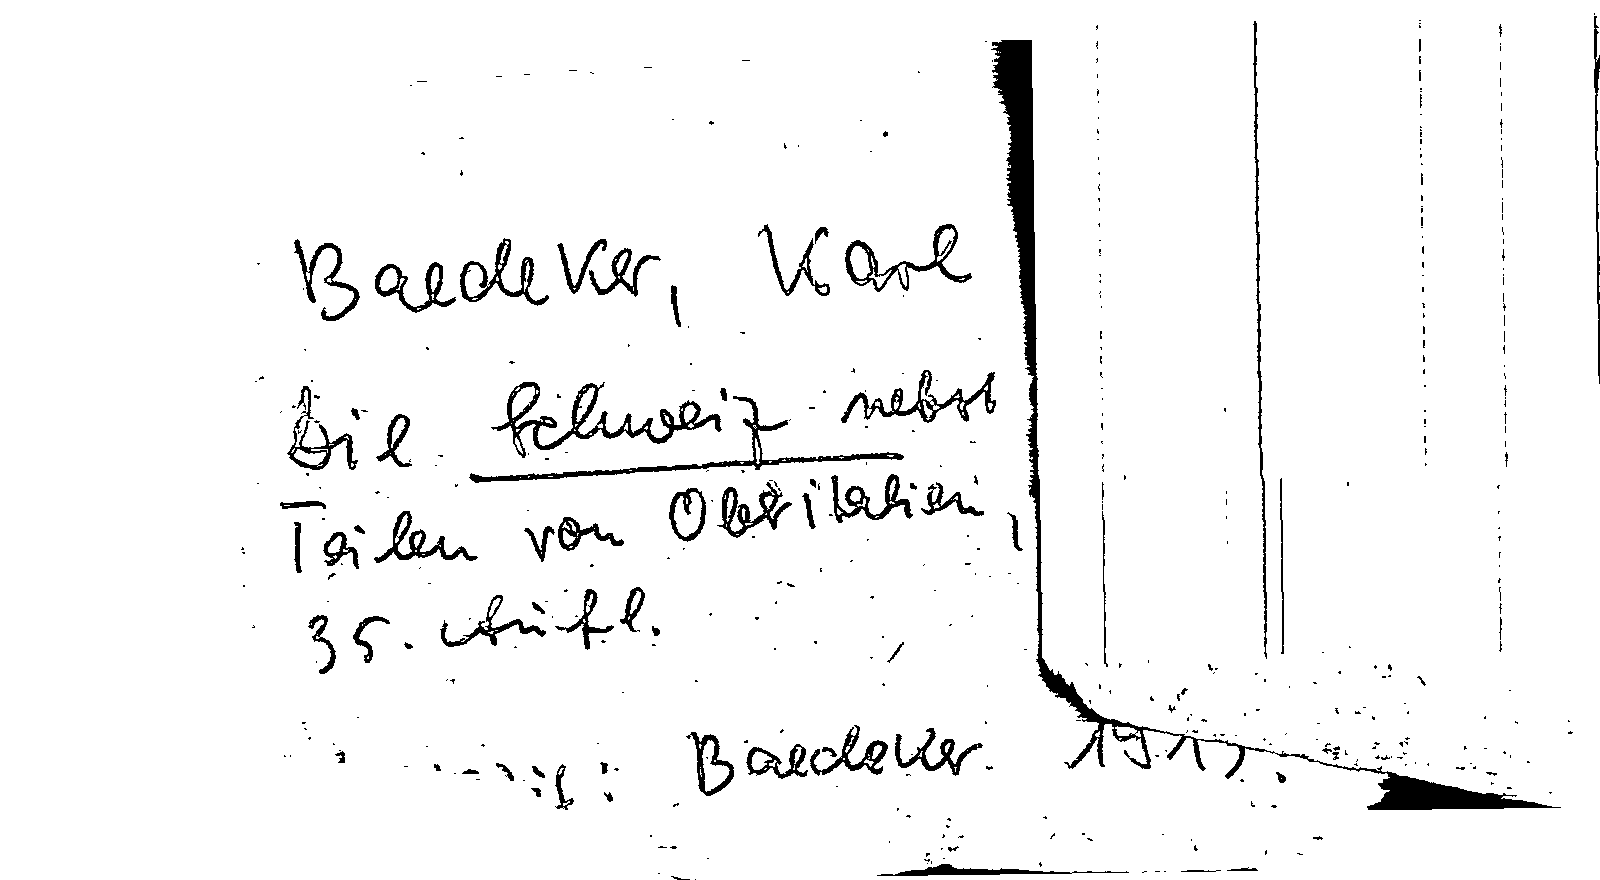 Baedeker, Karl
Die Schweiz nebst
Teilen von Oberitalien,
35. Aufl.
Baedeker